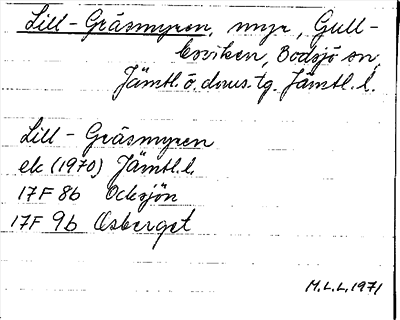 Lill-Gräsmyren, myr, Gull-
boviken, Bodsjö sn,
Jämtl. ö. doms. tg. Jämtl. l.
Lill-Gräsmyren
ek (1970) Jämtl. l.
17F 8b Ocksjön
17F 9b Osberget
M.L.L. 1971